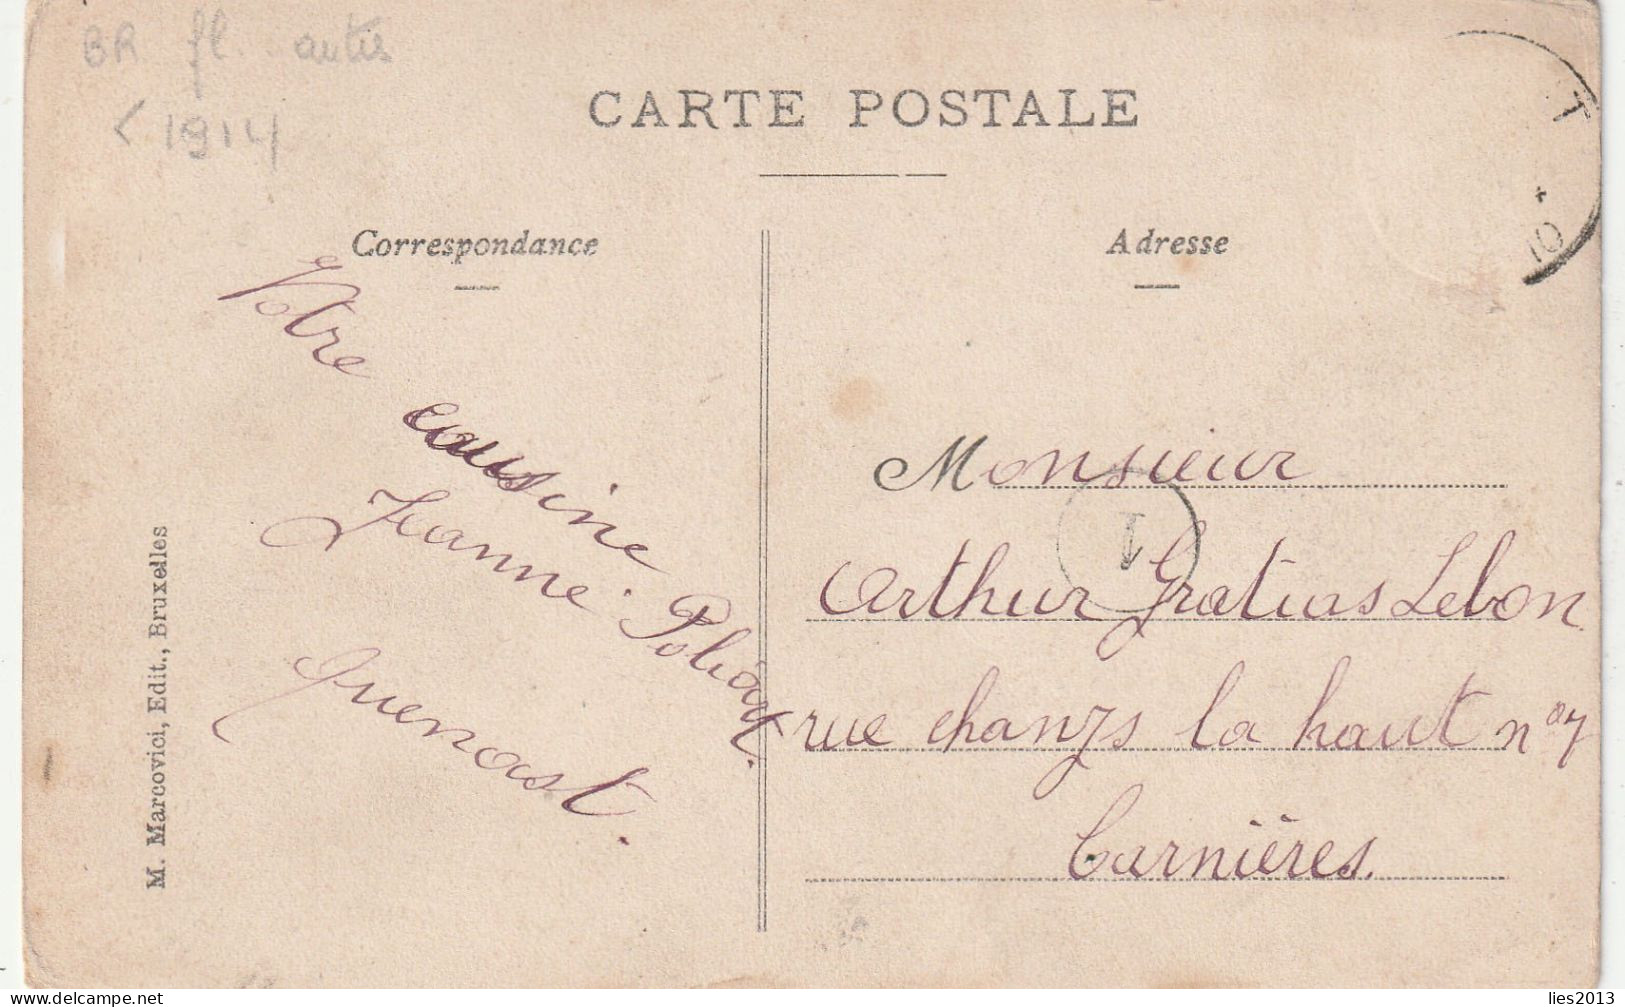 BR fl. autres
< 1914
CARTE POSTALE
Correspondance
Adresse
Votre
cousine
Jeanne Poliart.
Quenast.
Monsieur
Arthur Gratias Lebon
rue chanzs la haut n° 7
Carnières.
1
T
10
M. Marcovici, Edit., Bruxelles
lies2013